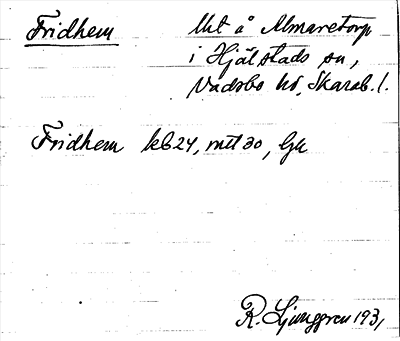 Fridhem Uht å Almaretorp
i Hjälstads sn,
Vadsbo hd, Skarab. l.
Fridhem kb 24, mtl 30, Gk
R. Ljunggren 1931